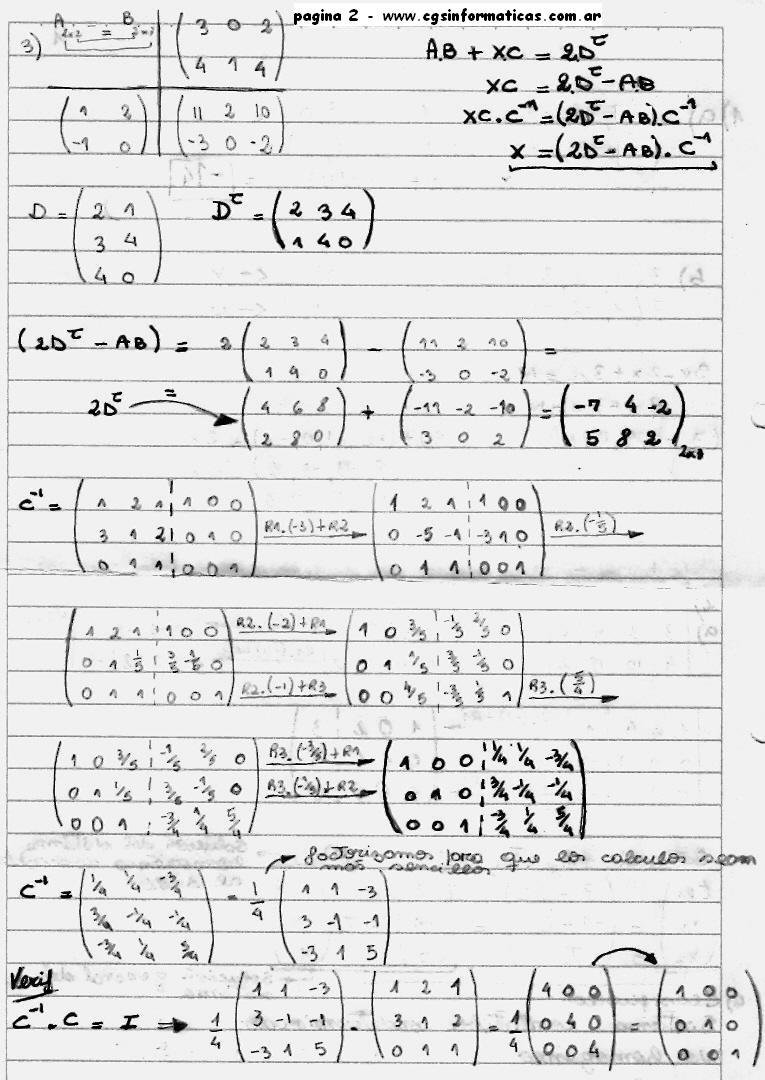 pagina 2 - www.cgsinformaticas.com.ar
3) A 2x2 = B 2x3
3 0 2
4 1 4
1 2
-1 0
11 2 10
-3 0 -2
A.B + XC = 2D^τ
XC = 2D^τ - AB
XC.C^-1 = (2D^τ - AB).C^-1
X = (2D^τ - AB).C^-1
D =
2 1
3 4
4 0
D^τ =
2 3 4
1 4 0
(2D^τ - AB) = 2 (2 3 4) - (11 2 10) =
1 4 0 -3 0 -2
2D^τ = (4 6 8) + (-11 -2 -10) = (-7 4 -2)
2 8 0 3 0 2 5 8 2 2x3
C^-1 =
1 2 1 | 1 0 0
3 1 2 | 0 1 0
0 1 1 | 0 0 1
R1.(-3)+R2
1 2 1 | 1 0 0
0 -5 -1 | -3 1 0
0 1 1 | 0 0 1
R2.(-1/5)
1 2 1 | 1 0 0
0 1 1/5 | 3/5 -1/5 0
0 1 1 | 0 0 1
R2.(-2)+R1
R2.(-1)+R3
1 0 3/5 | -1/5 2/5 0
0 1 1/5 | 3/5 -1/5 0
0 0 4/5 | -3/5 1/5 1
R3.(5/4)
1 0 3/5 | -1/5 2/5 0
0 1 1/5 | 3/5 -1/5 0
0 0 1 | -3/4 1/4 5/4
R3.(-3/5)+R1
R3.(-1/5)+R2
1 0 0 | 1/4 1/4 -3/4
0 1 0 | 3/4 -1/4 -1/4
0 0 1 | -3/4 1/4 5/4
factorizamos para que los calculos sean
más sencillos
C^-1 = (1/4 1/4 -3/4) = 1/4 (1 1 -3)
3/4 -1/4 -1/4 3 -1 -1
-3/4 1/4 5/4 -3 1 5
Verif
C^-1 . C = I ⇒ 1/4
1 1 -3
3 -1 -1
-3 1 5
.
1 2 1
3 1 2
0 1 1
= 1/4
4 0 0
0 4 0
0 0 4
=
1 0 0
0 1 0
0 0 1